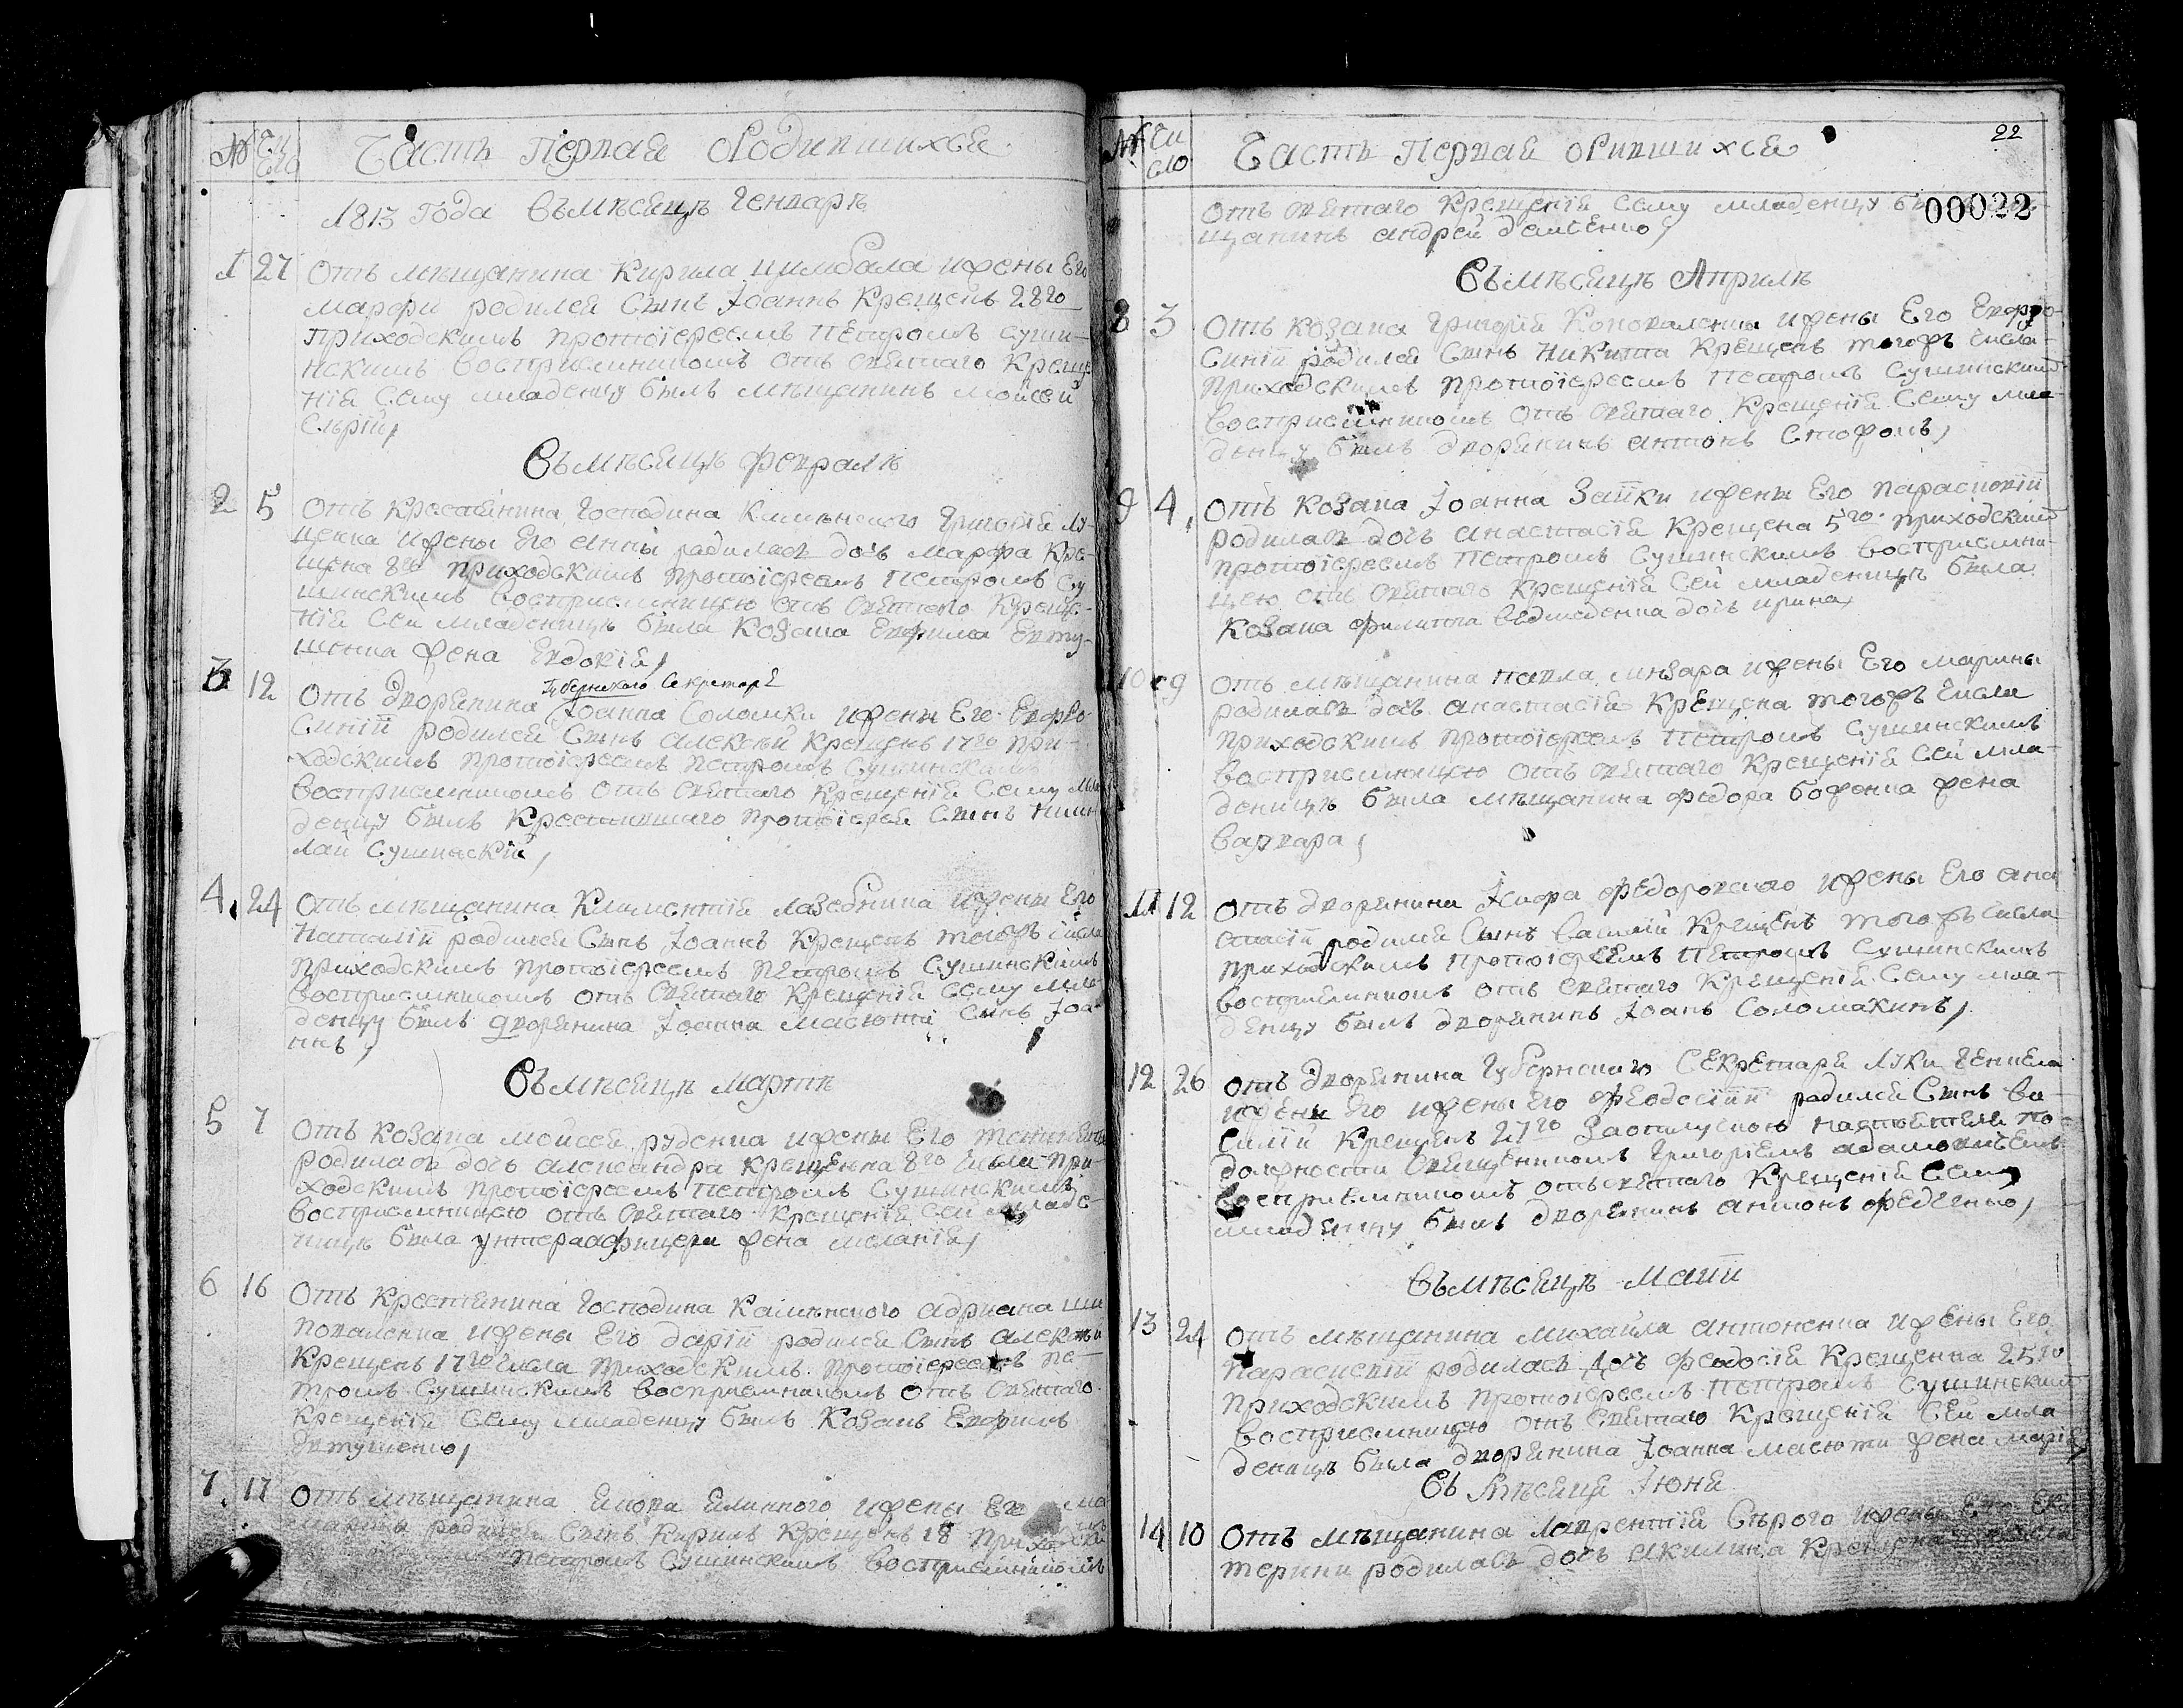 № Чи
сло
Часть Первая оРодившихся
1813 Года въмѣсяцѣ Генварѣ
1 27 Отъ мѣщанина Кирила Цимбала ижены Его
марфи родился Сынъ Іоаннъ Крещенъ 28го
приходскимъ протоіереемъ Петромъ Суши-
нскимъ восприемникомъ отъ святаго Креще
нія Сему младенцу былъ мѣщанинъ моисей
Сѣрій,
Въмѣсяцѣ февралѣ
2 5 Отъ Крестянина Господина Камѣнского Григорія Лу-
ценка ижены Его анны родилась дочь марфа Кре-
щена 8го приходскимъ протоіереемъ Петромъ Су
шинскимъ восприемницею отъ святаго Креще-
нія Сей младеницѣ была Козака Евфима Евту-
шенка жена Евдокія,
3 12 Отъ дворянина Губернскаго Секретаря Іоанна Соломки ижены Его Евфро-
Синіи родился Сынъ алексѣй Крещенъ 17го при-
ходскимъ протоіереемъ петромъ Сушинскимъ
восприемникомъ отъ святаго Крещенія Сему мла
денцу былъ Крестившаго протоіерея Сынъ Нико
лай Сушинскій,
4. 24 Отъ мѣщанина Климентія Лазебника ижены Его
Наталіи родился Сынъ Іоаннъ Крещенъ тогожъ числа
приходскимъ протоіереемъ Петромъ Сушинскимъ
восприемникомъ отъ святаго Крещенія Сему мла
денцу былъ дворянина Іоанна масюти Сынъ Іоа-
ннъ,
Въмѣсяцѣ мартѣ
5 7 Отъ Козака моисея руденка ижены Его
родилась дочь александра Крещенна 8го числа при-
ходскимъ протоіереемъ петромъ Сушинскимъ
восприемницею отъ святаго Крещенія Сей младе-
ницѣ была унтерафицера жена меланія,
6 16 Отъ Крестянина Господина Камѣнского адриана
поваленка ижены Его даріи родился Сынъ алексѣй
Крещенъ 17го числа приходскимъ протоіереемъ пе-
тромъ Сушинскимъ восприемникомъ отъ святаго
Крещенія Сему младенцу былъ Козакъ Евфимъ
Евтушенко,
7. 17 Отъ мѣщанина ижены Его
родился Сынъ Кирилъ Крещенъ 18 приходски
петромъ Сушинскимъ восприемникомъ
№ Чи
сло
Часть Первая оРившихся
22
отъ святаго Крещенія Сему младенцу 00022
щанинъ андрей
Въмѣсяцѣ Априлѣ
8 3 Отъ Козака Григорія Коноваленка ижены Его Евфро-
Синіи родился Сынъ Никита Крещенъ тогожъ числа
приходскимъ протоіереемъ петромъ Сушинскимъ
восприемникомъ отъ святаго Крещенія Сему мла-
денцу былъ дворянинъ антонъ
9 4, Отъ Козака Іоанна Заики ижены Его параскевіи
родилась дочь анастасія Крещена 5го приходским
протоіереемъ петромъ Сушинскимъ восприемни-
цею отъ святаго Крещенія Сей младеницѣ была
Козака филиппа ведмеденка дочь ирина,
10 9 Отъ мѣщанина павла ижены Его марины
родилась дочь анастасія Крещена тогожъ числа
приходскимъ протоіереемъ Петромъ Сушинскимъ
восприемницею отъ святаго Крещенія Сей мла-
деницѣ была мѣщанина федора боженка жена
варвара,
11 12 Отъ дворянина федоровского ижены Его ана
стасіи родился Сынъ василій Крещенъ тогожъ числа
приходскимъ протоіереемъ Петромъ Сушинскимъ
восприемникомъ отъ святаго Крещенія Сему мла-
денцу былъ дворянинъ Іоанъ Соломахинъ,
12 26 отъ дворянина Губернскаго Секретаря Луки
ижени Его ижены Его феодосіии родился Сынъ ва-
силій Крещенъ 27го
должности Священникомъ Григоріемъ адамовичемъ
восприемникомъ отъ святаго Крещенія Сему
младенцу былъ дворянинъ антонъ феденко,
въмѣсяцѣ маии
13 24 Отъ мѣщанина михаила антоненка ижены Его
параскевіи родилась дочь феодосія Крещенна 25го
приходскимъ протоіереемъ петромъ Сушинскимъ
восприемницею отъ святаго Крещенія Сей мла-
деницѣ была дворянина Іоанна масюти жена марія,
Въ мѣсяцѣ Іюнѣ
14 10 Отъ мѣщанина лаврентія Сѣрого ижены Его Ека
терини родилась дочь акилина Крещена